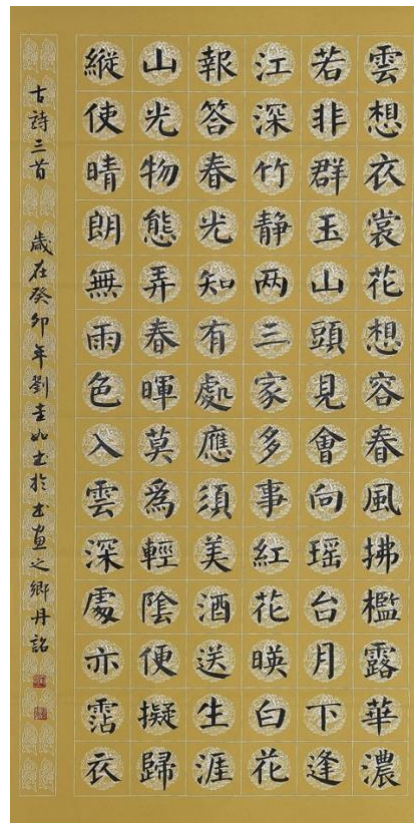 雲想衣裳花想容春風拂檻露華濃
若非群玉山頭見會向瑶台月下逢
江深竹靜两三家多事紅花暎白花
報答春光知有處應須美酒送生涯
山光物態弄春暉莫為輕陰便擬歸
縱使晴朗無雨色入雲深處亦霑衣
古詩三首 歲在癸卯年劉圭如书於书画之鄉丹詔